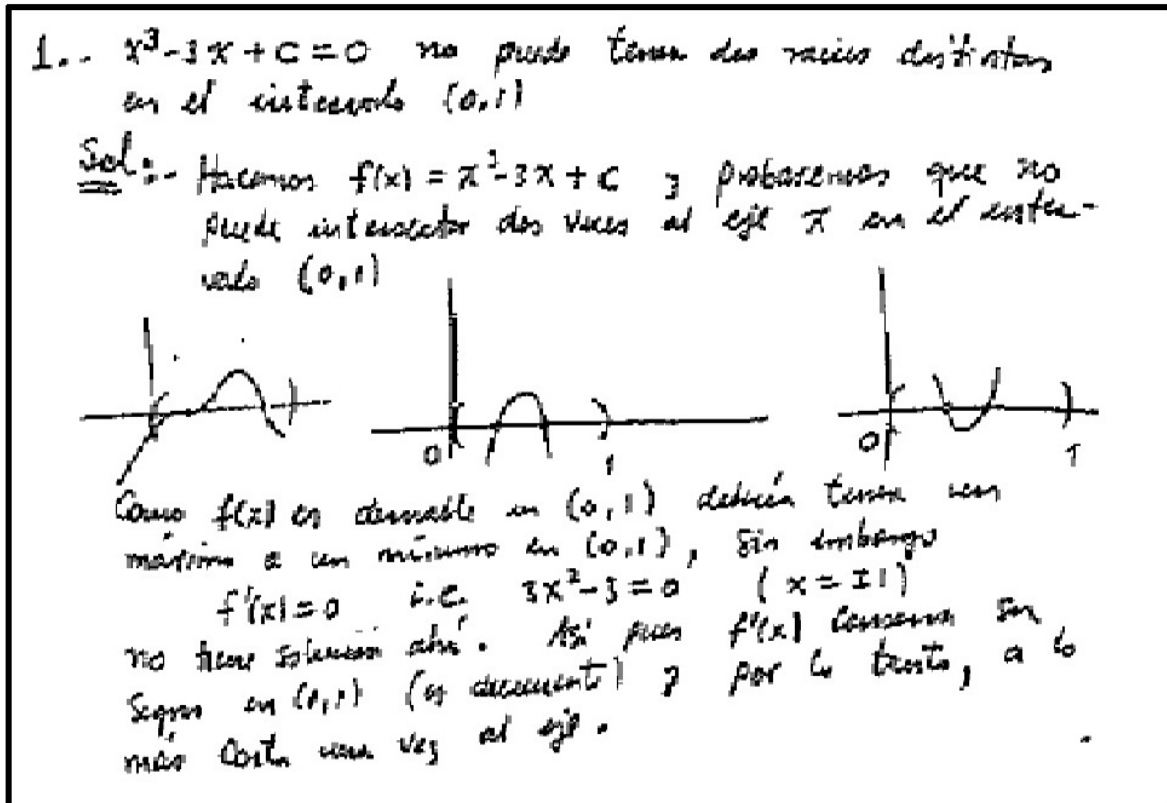 1.- x³-3x+c=0 no puede tener dos raices distintas
en el intervalo (0,1)
Sol:- Hacemos f(x) = x³-3x+c y probaremos que no
puede intersectar dos veces al eje x en el inter-
valo (0,1)
0 1 0 1
Como f(x) es derivable en (0,1) debería tener un
máximo o un mínimo en (0,1), sin embargo
f'(x)=0 i.e. 3x²-3=0 (x=±1)
no tiene solución ahí. Así pues f'(x) conserva su
signo en (0,1) (es decreciente) y por lo tanto, a lo
más corta una vez al eje.